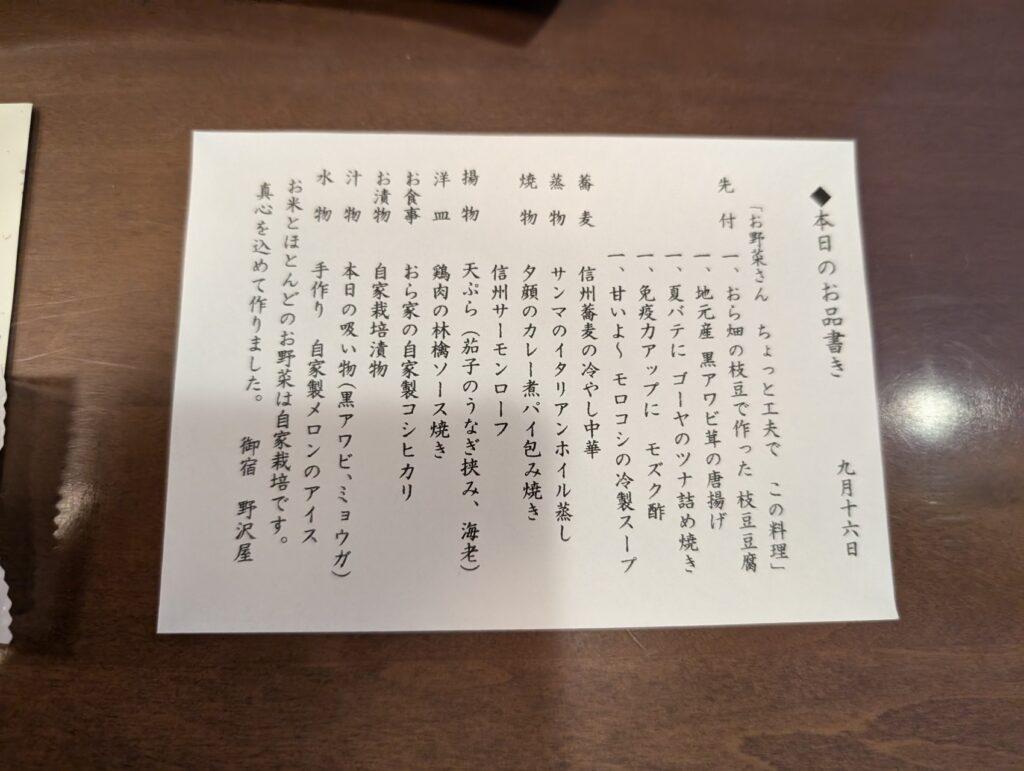 ◆本日のお品書き
九月十六日
「お野菜さん ちょっと工夫で この料理」
先付 一、おら畑の枝豆で作った 枝豆豆腐
一、地元産 黒アワビ茸の唐揚げ
一、夏バテに ゴーヤのツナ詰め焼き
一、免疫力アップに モズク酢
一、甘いよ～ モロコシの冷製スープ
蕎麦 信州蕎麦の冷やし中華
蒸物 サンマのイタリアンホイル蒸し
焼物 夕顔のカレー煮パイ包み焼き
信州サーモンローフ
揚物 天ぷら（茄子のうなぎ挟み、海老）
洋皿 鶏肉の林檎ソース焼き
お食事 おら家の自家製コシヒカリ
お漬物 自家栽培漬物
汁物 本日の吸い物（黒アワビ、ミョウガ）
水物 手作り 自家製メロンのアイス
お米とほとんどのお野菜は自家栽培です。
真心を込めて作りました。 御宿 野沢屋